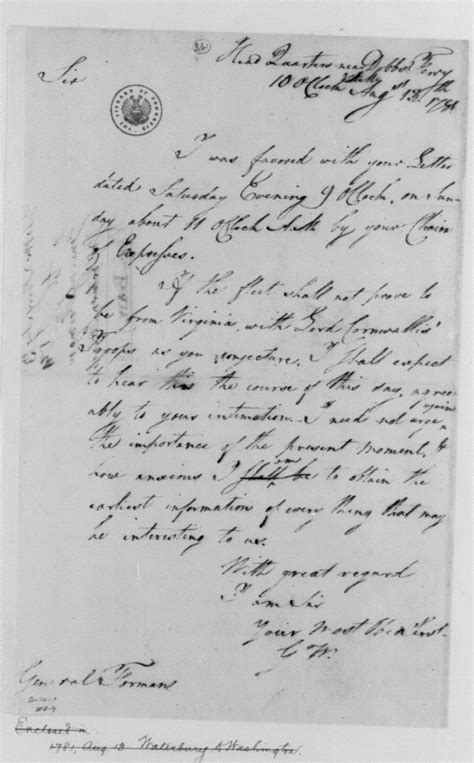 Head Quarters near Dobbs Ferry
10 OClock Augt 13th 1781
Sir
THE LIBRARY OF CONGRESS
I was favored with your Letter
dated Saturday Evening 9 OClock, on Sun-
day about 11 OClock A.M. by your Chain
of Expresses.
If the fleet shall not prove to
be from Virginia, with Lord Cornwallis'
Troops as you conjecture, I shall expect
to hear in the course of this day, agree-
ably to your intimation. I need not urge, again
the importance of the present moment, &
how anxious I shall be am to obtain the
earliest information of every thing that may
be interesting to us.
With great regard
I am Sir
Your Most
G W.
General Forman
Enclosed in
1781, Aug 13 Waterbury to Washington.